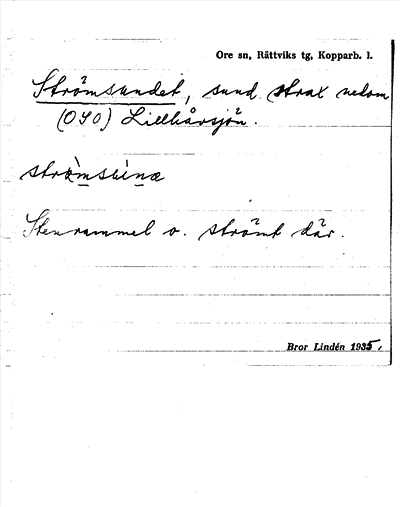 Ore sn, Rättviks tg, Kopparb. l.
Strömsundet, sund strax nedom
(OSO) Lillhårsjön.
Stenrammel o. strömt där.
Bror Lindén 1935.